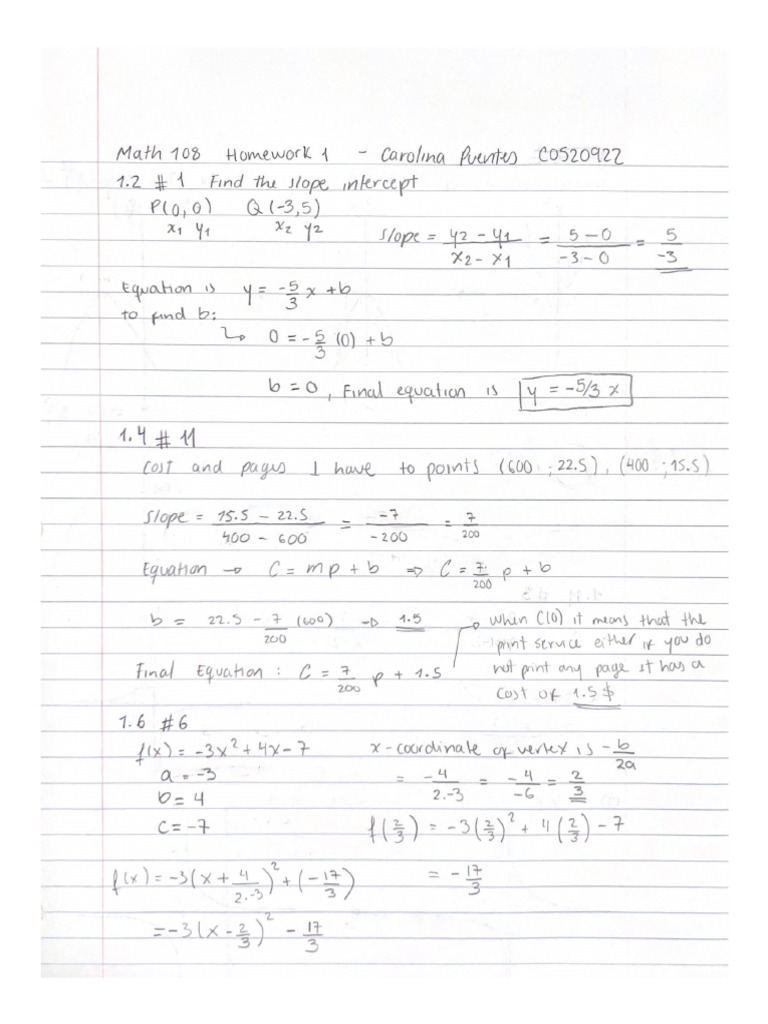 Math 108 Homework 1 - Carolina Puentes C0520922
1.2 # 1 Find the slope intercept
P(0,0) Q(-3,5)
x1 y1 x2 y2
slope = y2 - y1 / x2 - x1 = 5 - 0 / -3 - 0 = 5 / -3
Equation is y = -5/3 x + b
to find b:
↳ 0 = -5/3 (0) + b
b = 0, Final equation is y = -5/3 x
1.4 # 11
Cost and pages I have to points (600 ; 22.5), (400 ; 15.5)
Slope = 15.5 - 22.5 / 400 - 600 = -7 / -200 = 7/200
Equation → C = mp + b ⇒ C = 7/200 p + b
b = 22.5 - 7/200 (600) → 1.5
when C(0) it means that the
print service either if you do
not print any page it has a
cost of 1.5$
Final Equation : C = 7/200 p + 1.5
1.6 #6
f(x) = -3x² + 4x - 7
a = -3
b = 4
c = -7
x-coordinate of vertex is -b/2a
= -4 / 2.-3 = -4 / -6 = 2/3
f(2/3) = -3(2/3)² + 4(2/3) - 7
= -17/3
f(x) = -3(x + 4/2.-3)² + (-17/3)
= -3(x - 2/3)² - 17/3